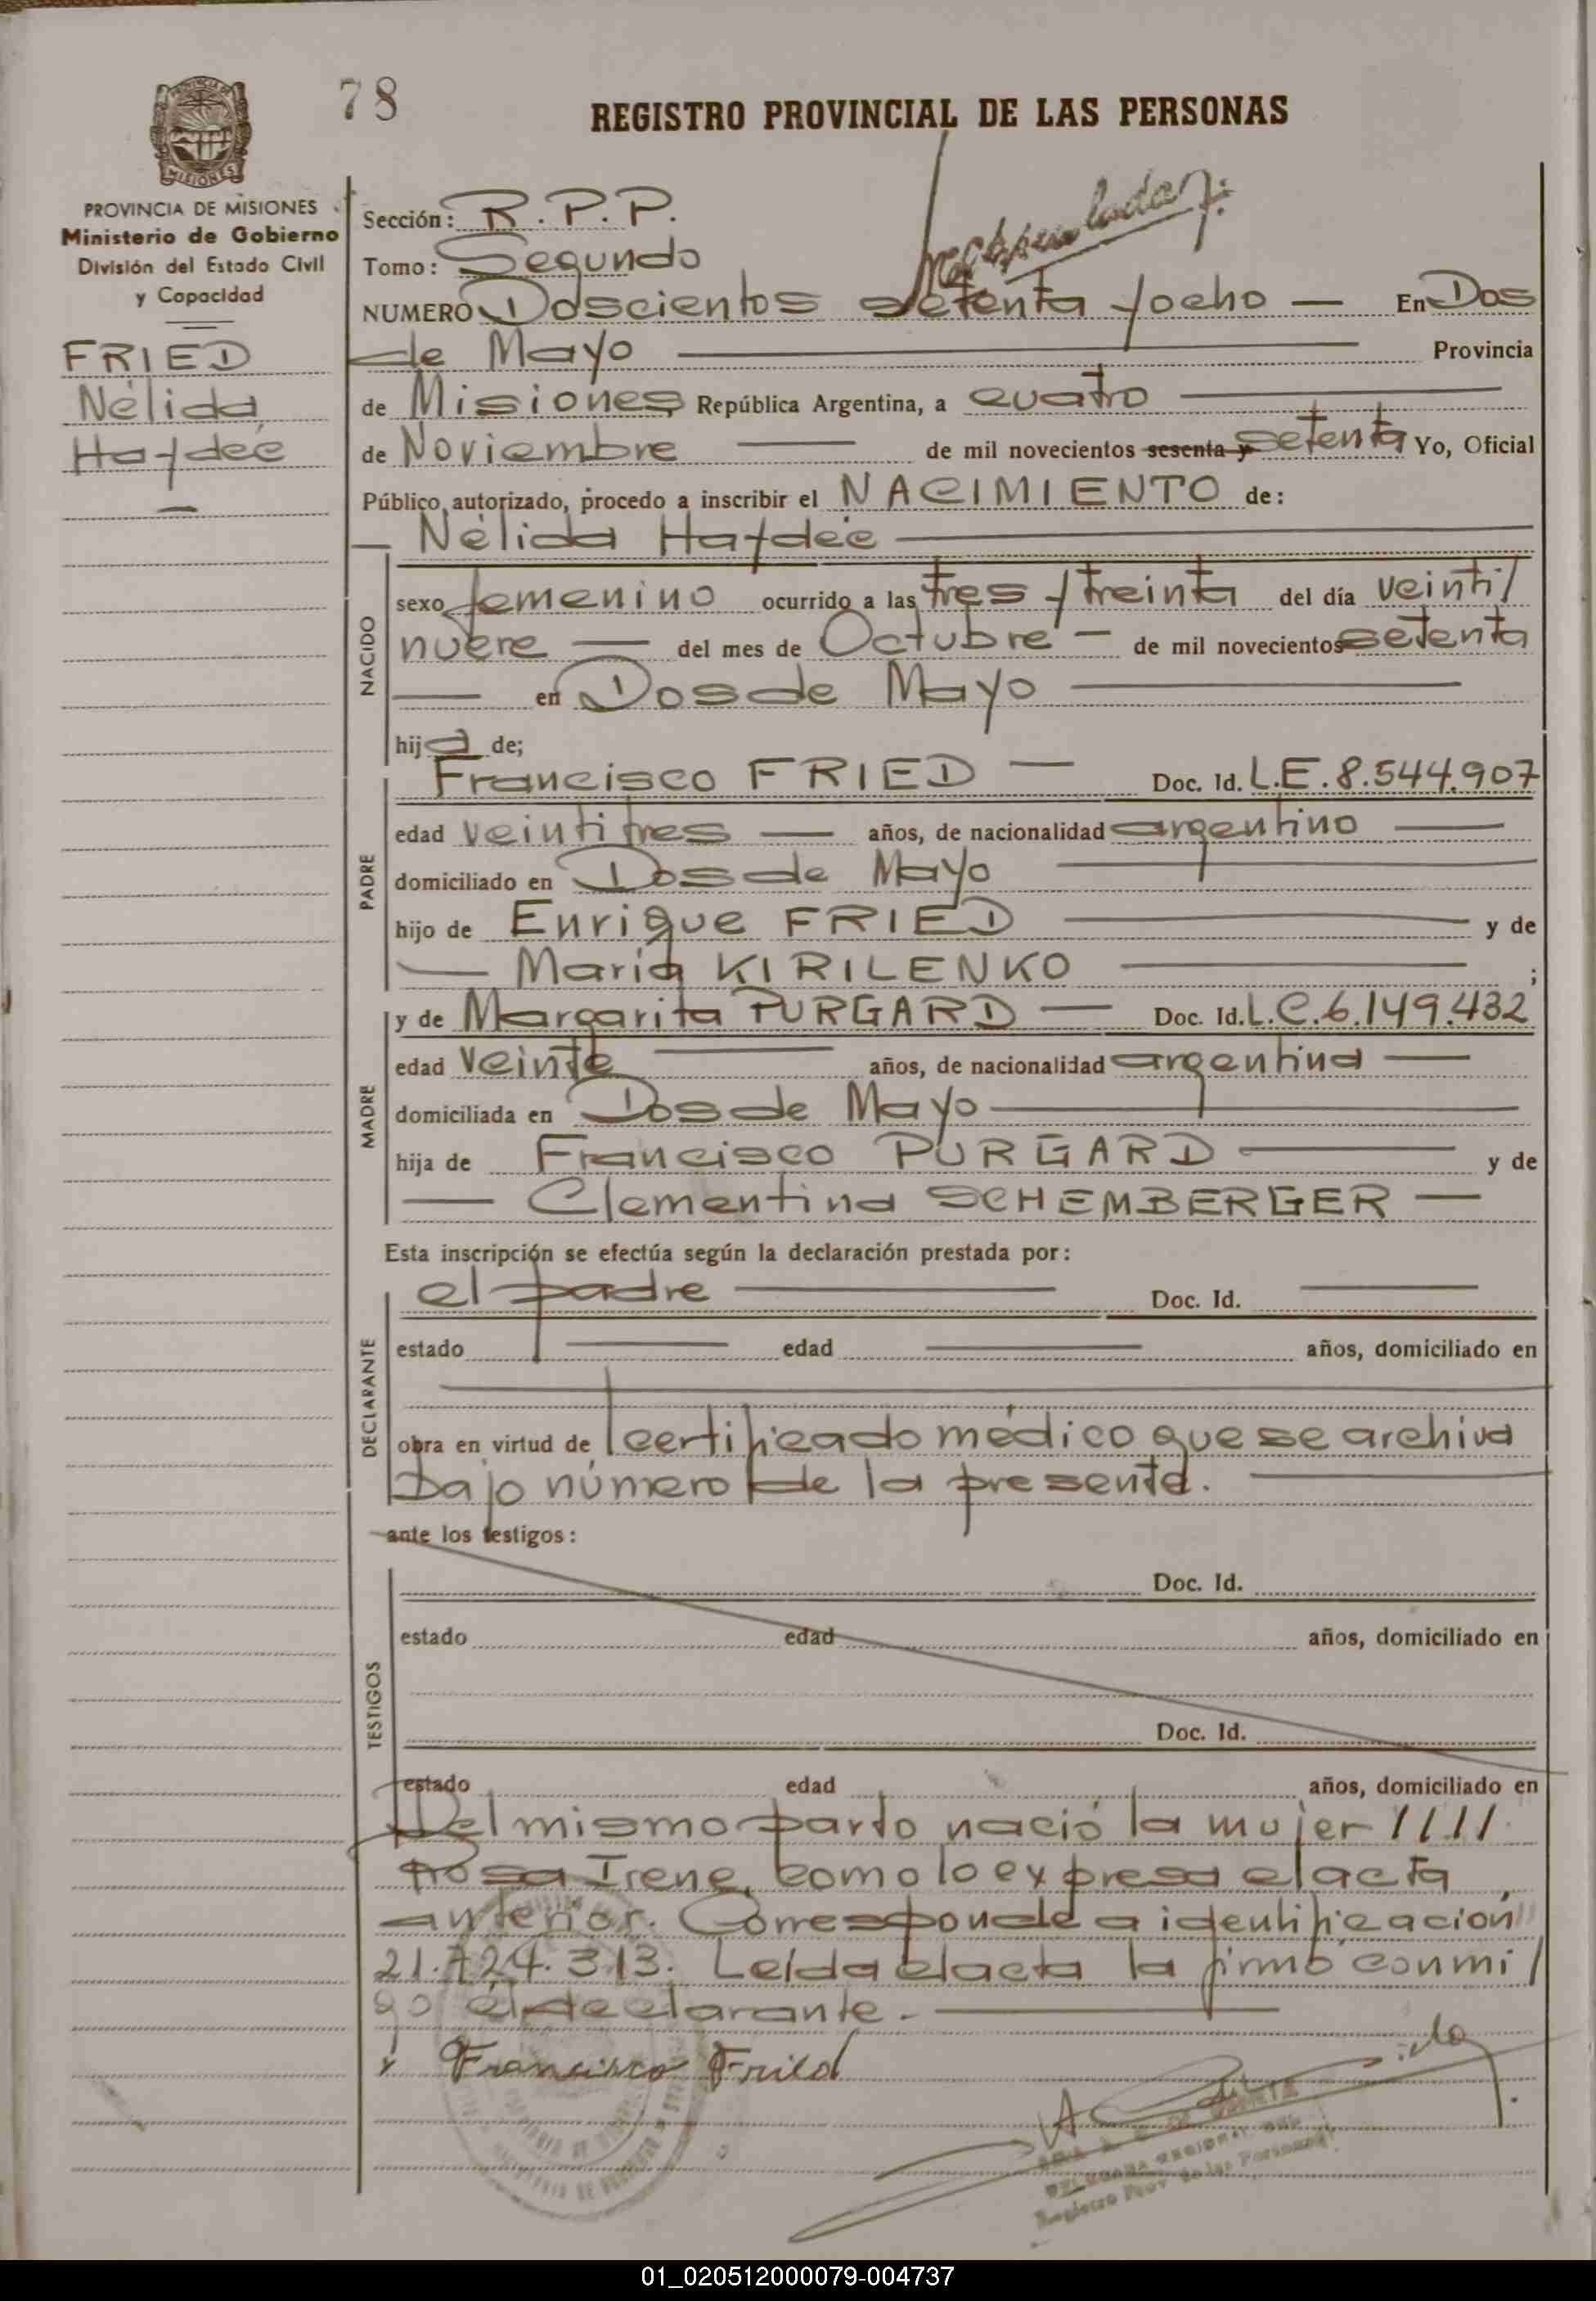 78
REGISTRO PROVINCIAL DE LAS PERSONAS
PROVINCIA DE MISIONES
Ministerio de Gobierno
División del Estado Civil
y Capacidad
FRIED
Nélida
Haydeé
Sección: R.P.P.
Tomo: Segundo
NUMERO Doscientos setenta y ocho — En Dos
de Mayo — Provincia
de Misiones República Argentina, a cuatro —
de Noviembre — de mil novecientos sesenta y setenta Yo, Oficial
Público autorizado, procedo a inscribir el NACIMIENTO de:
— Nélida Haydeé —
NACIDO
sexo femenino ocurrido a las tres y treinta del día veinti/
nueve — del mes de Octubre — de mil novecientos setenta
— en Dos de Mayo —
hija de;
PADRE
Francisco FRIED — Doc. Id. L.E. 8.544.907
edad veintitres — años, de nacionalidad argentino —
domiciliado en Dos de Mayo —
hijo de Enrique FRIED — y de
— María KIRILENKO — ;
MADRE
y de Margarita PURGARD — Doc. Id. L.C. 6.149.432
edad veinte — años, de nacionalidad argentina —
domiciliada en Dos de Mayo —
hija de Francisco PURGARD — y de
— Clementina SCHEMBERGER —
Esta inscripción se efectúa según la declaración prestada por:
DECLARANTE
el padre — Doc. Id. —
estado — edad — años, domiciliado en
obra en virtud de l certificado médico que se archiva
bajo número de la presente. —
ante los testigos:
TESTIGOS
Doc. Id.
estado edad años, domiciliado en
Doc. Id.
estado edad años, domiciliado en
Del mismo parto nació la mujer ////
Rosa Irene, como lo expresa el acta
anterior. Corresponde a identificación
21.724.313. Leída el acta la firmó conmi/
go el declarante. —
x Francisco Fried
Registro Prov. de las Personas
01_020512000079-004737